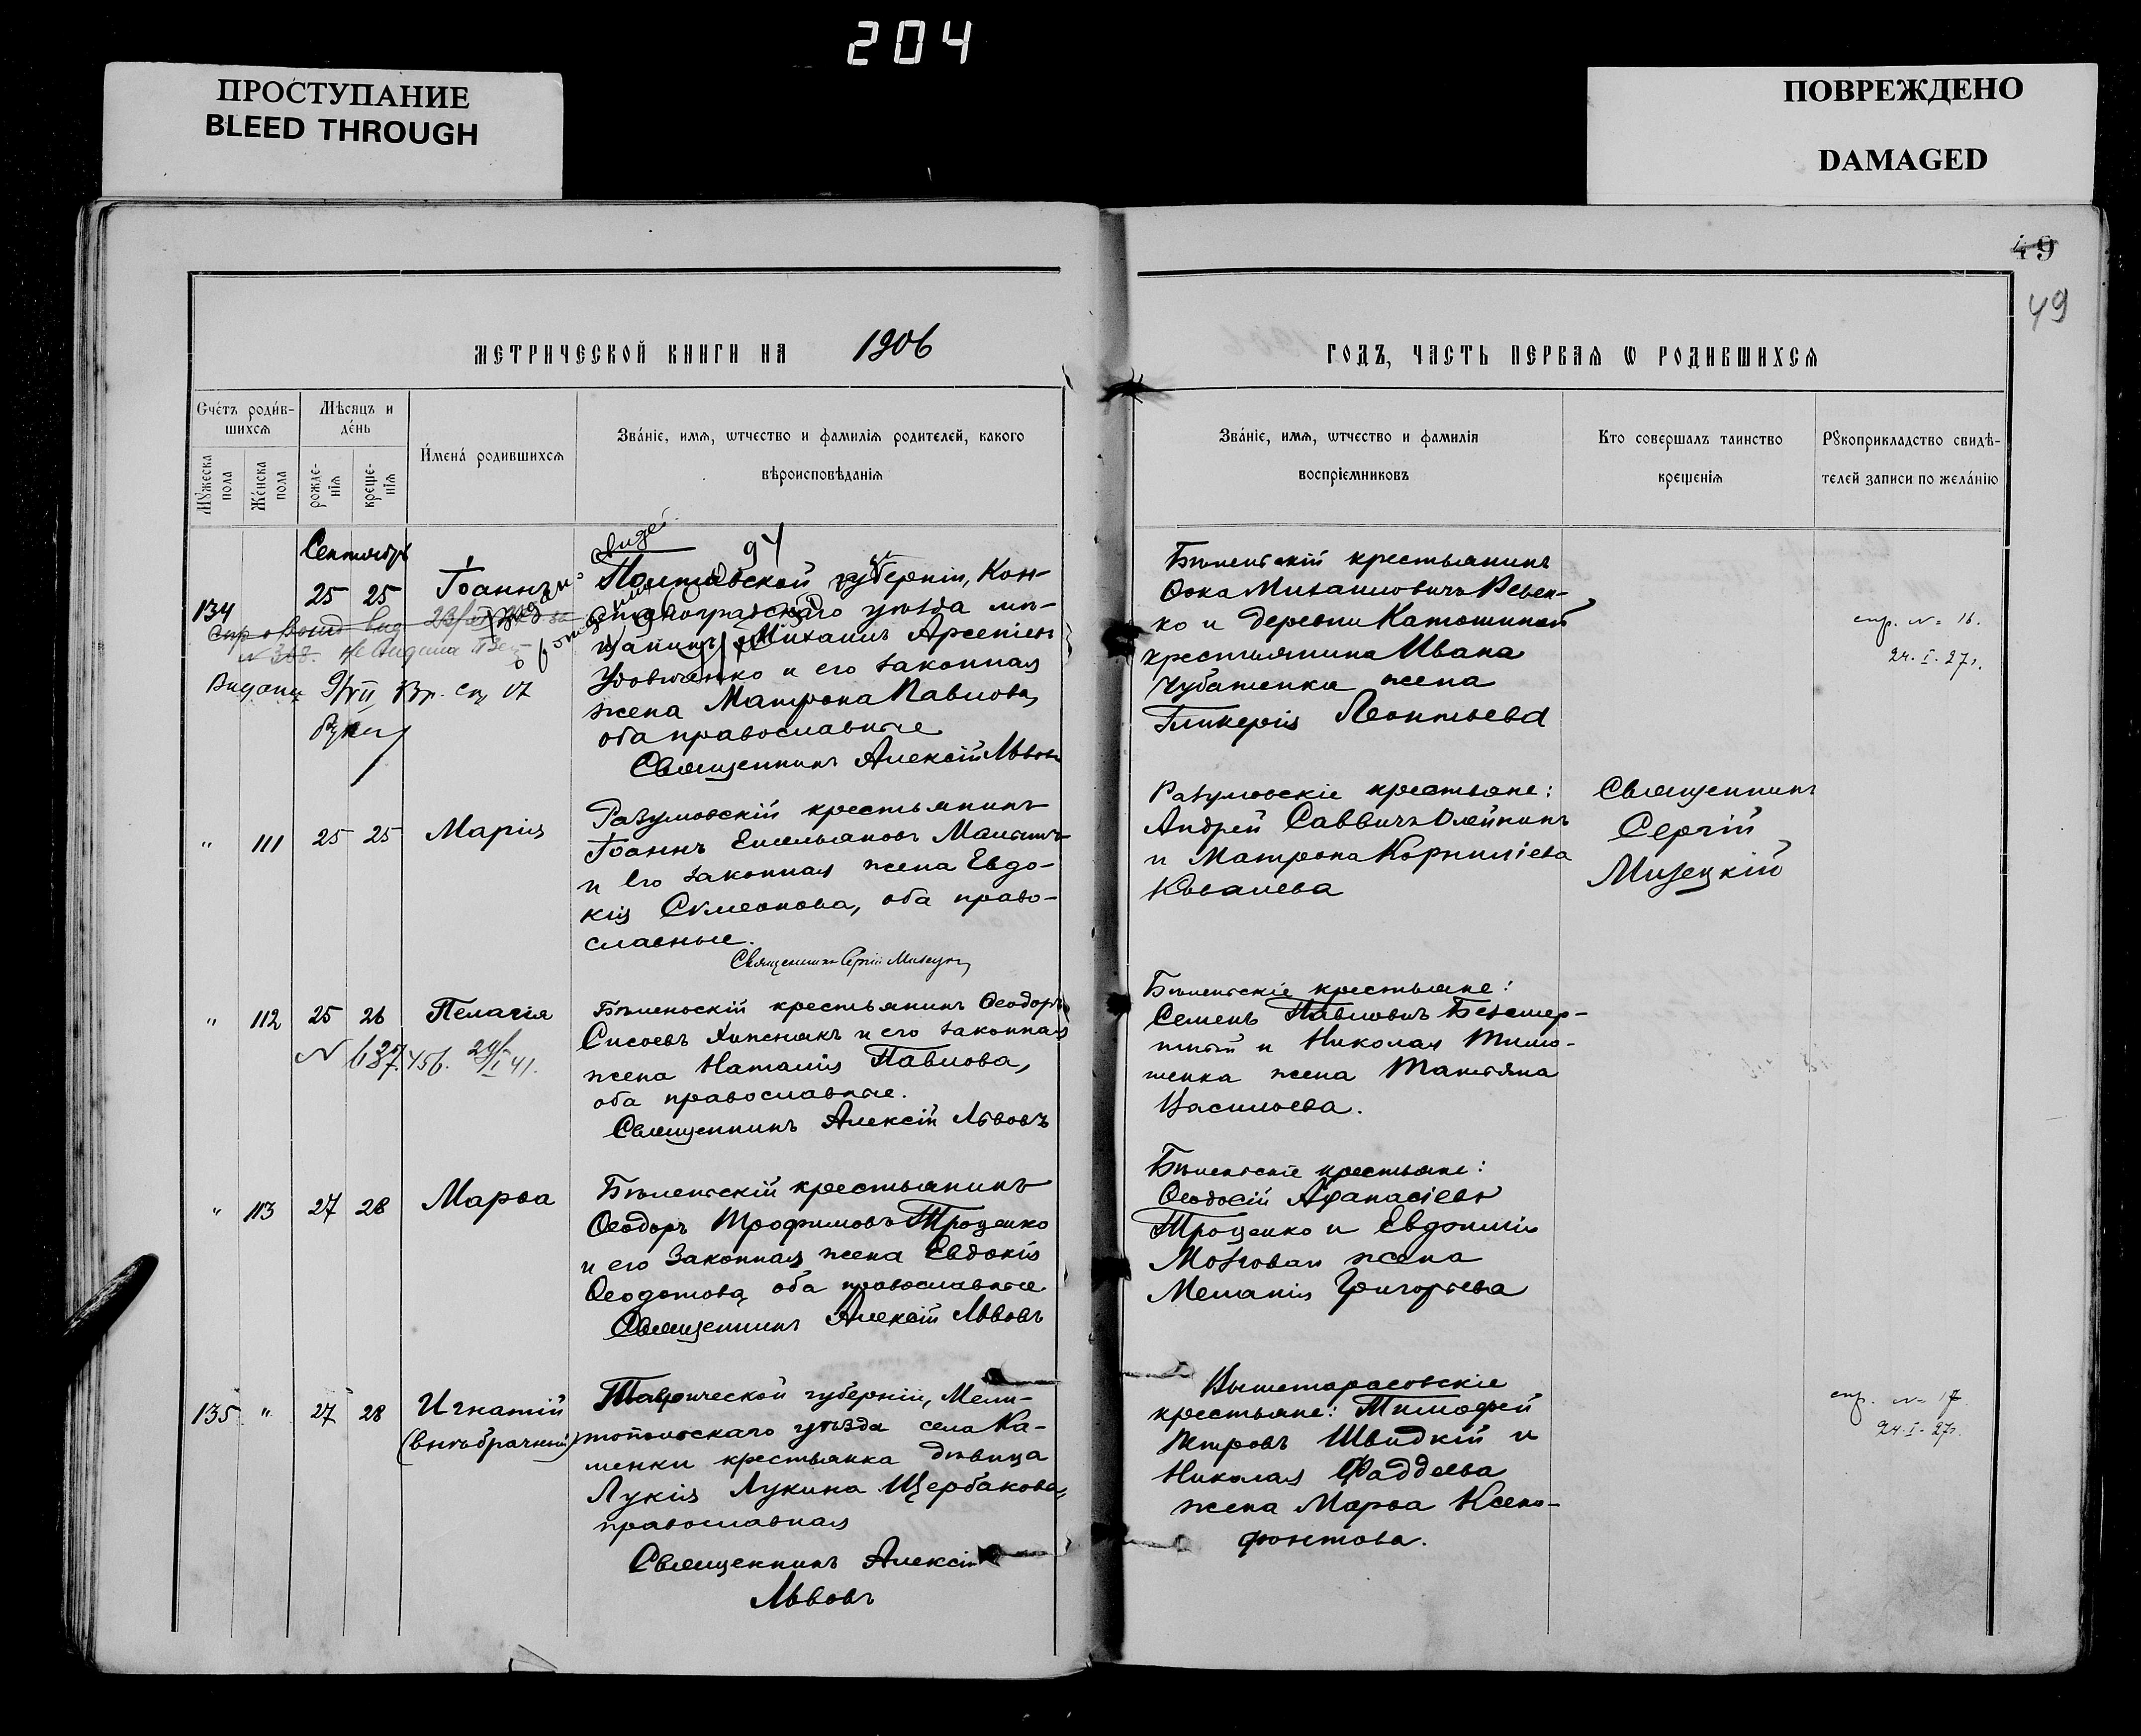 204
ПРОСТУПАНИЕ
BLEED THROUGH
ПОВРЕЖДЕНО
DAMAGED
49
49
МЕТРИЧЕСКОЙ КНИГИ НА 1906
ГОДЪ, ЧАСТЬ ПЕРВАЯ Ѡ РОДИВШИХСЯ
Счéтъ роди́в-
шихся
Мѣсяцъ и
де́нь
И́мена́ родившихся
Зва́нїе, имя, ѡтчество и фамилїя родителей, какого
вѣроисповѣданїя
Мꙋжеска
пола
Же́нска
пола
рожде-
нїя
креще-
нїя
Зва́нїе, имя, ѡтчество и фамилїя
воспрїемниковъ
Кто совершалъ таинство
крещенїя
Рꙋкоприкладство свидѣ-
телей записи по жела́нїю
Сентябрь
134
25 25
Іоаннъ
94
Полтавской губерніи, Кон-
стантиноградскаго уѣзда мѣ-
щанинъ Михаилъ Арсеніевъ
Удовиченко и его законная
жена Матрона Павлова,
оба православные
Священникъ Алексій Львовъ
Бѣленьскій крестьянинъ
Ѳока Михаиловичъ Ревен-
ко и деревни
крестьянина Ивана
жена
Гликерія Леонтьева
спр. № 16.
24.I.27г.
" 111 25 25 Марія
Разумовскій крестьянинъ
Іоаннъ Емельяновъ
и его законная жена Евдо-
кія Симеонова, оба право-
славные.
Священникъ Сергій
Разумовскіе крестьяне:
Андрей Саввичъ Олейникъ
и Матрона Корниліева
Ковалева
Священникъ
Сергій
Мизецкій
" 112 25 26 Пелагія
Бѣленьскій крестьянинъ Ѳеодоръ
Сисоевъ и его законная
жена Наталія Павлова,
оба православные.
Священникъ Алексій Львовъ
Бѣленьскіе крестьяне:
Семенъ Павловичъ Безсмер-
тный и Николая Тимо-
шенка жена Татіяна
Васильева.
" 113 27 28 Марѳа
Бѣленьскій крестьянинъ
Ѳеодоръ Трофимовъ Троценко
и его законная жена Евдокія
Ѳеодотова, оба православные
Священникъ Алексій Львовъ
Бѣленьскіе крестьяне:
Ѳеодосій Афанасіевъ
Троценко и
жена
Меланія Григорьева
135 " 27 28 Игнатій
(внѣбрачный)
Таврической губерніи, Мели-
топольскаго уѣзда села Ка-
менки крестьянка дѣвица
Лукія Лукина Щербакова,
православная
Священникъ Алексій
Львовъ
Вышетарасовскіе
крестьяне: Тимофей
Петровъ Швидкій и
Николая Фаддеева
жена Марѳа Ксено-
фонтова.
спр. № 17
24.I.27г.